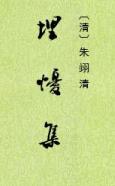 〔清〕朱翊清
埋憂集